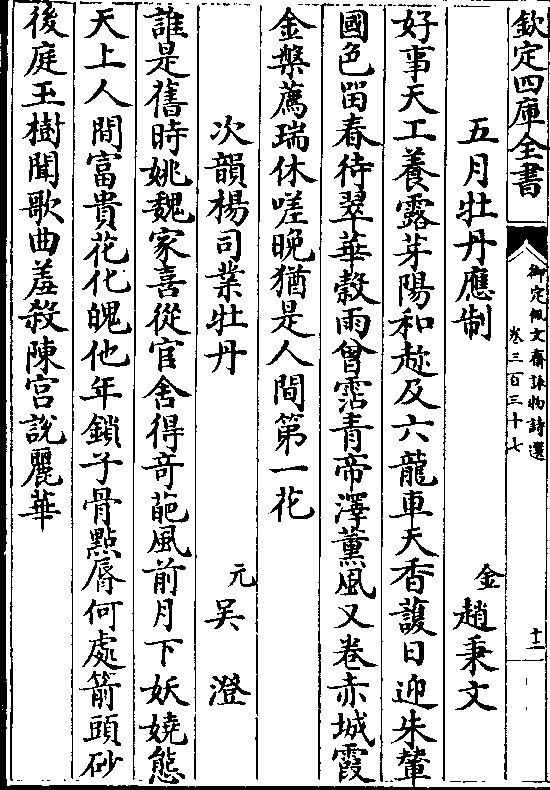 欽定四庫全書
御定佩文齋詠物詩選
卷三百三十七
十二
五月牡丹應制
金
趙秉文
好事天工養露芽陽和趂及六龍車天香護日迎朱輦
國色留春待翠華榖雨曾霑青帝澤薰風又卷赤城霞
金盤薦瑞休嗟晚猶是人間第一花
次韻楊司業牡丹
元
吳澄
誰是舊時姚魏家喜從官舍得竒葩風前月下妖嬈態
天上人間富貴花化魄他年鎖子骨點唇何處箭頭砂
後庭玉樹聞歌曲羞殺陳宫說麗華